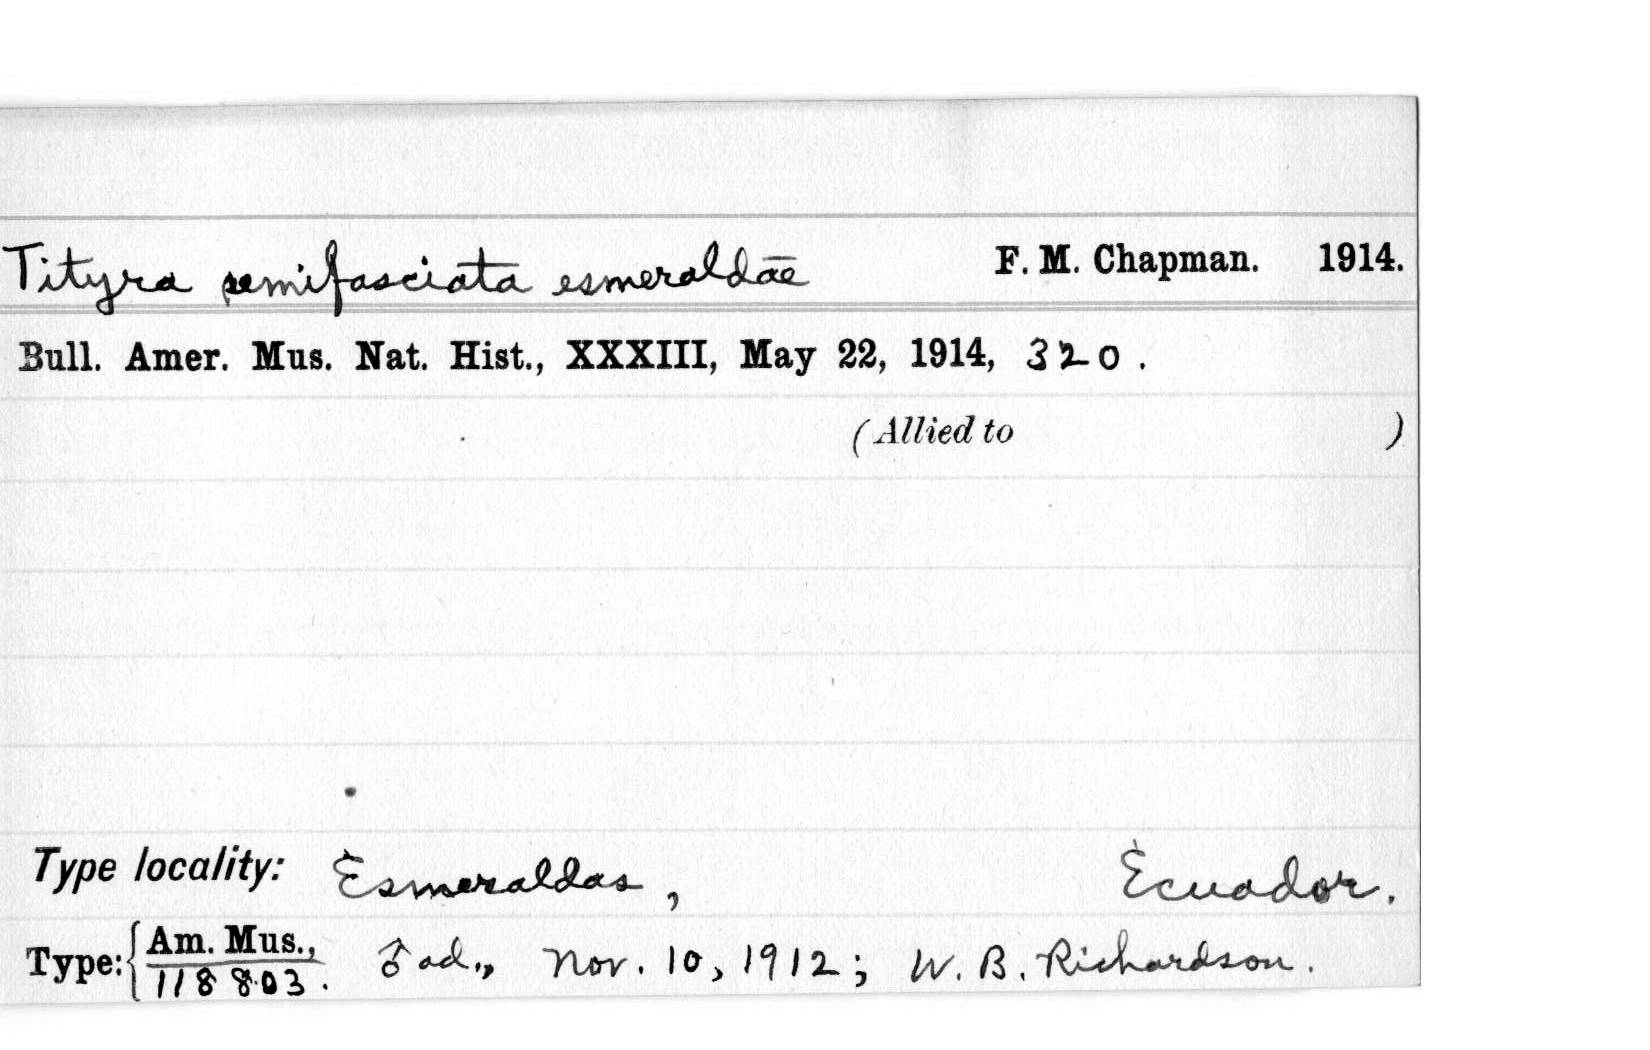 Tityra semifasciata esmeraldae F. M. Chapman. 1914.
Bull. Amer. Mus. Nat. Hist., XXXIII, May 22, 1914, 320.
(Allied to )
Type locality: Esmeraldas, Ecuador.
Type: { Am. Mus., ♂ ad., Nov. 10, 1912; W. B. Richardson.
118803.